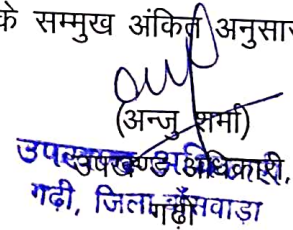 के सम्मुख अंकित अनुसार
(अन्जु शर्मा)
उपखण्ड अधिकारी,
गढ़ी
गढ़ी, जिला बाँसवाड़ा